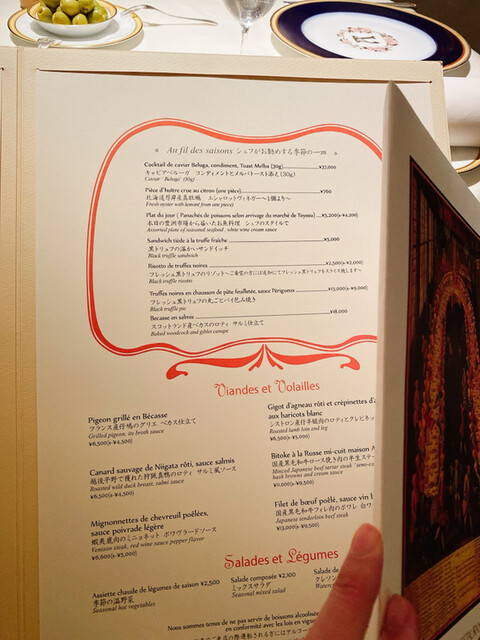 « Au fil des saisons シェフがお勧めする季節の一皿 »
Cocktail de caviar Beluga, condiment, Toast Melba (30g)
キャビアベルーガ コンディメントとメルバトースト添え(30g)
Caviar "Beluga" (30g)
Pièce d'huître crue au citron (une pièce) ¥760
北海道厚岸産真牡蠣 エシャロットヴィネガー～1個より～
Fresh oyster with lemon(from one piece)
Plat du jour ( Panachés de poissons selon arrivage du marché de Toyosu)
本日の豊洲市場から届いたお魚料理 シェフのスタイルで
Assorted plate of seasonal seafood, white wine cream sauce
Sandwich tiède à la truffe fraîche ¥5,000
黒トリュフの温かいサンドイッチ
Black truffle sandwich
Risotto de truffes noires
フレッシュ黒トリュフのリゾット
Black truffle risotto
Truffes noires en chausson de pâte feuilletée, sauce Périgueux
フレッシュ黒トリュフの丸ごとパイ包み焼き
Black truffle pie
Becasse en salmis
スコットランド産ベカスのロティ サルミ仕立て
Baked woodcock and giblet canape
Viandes et Volailles
Pigeon grillé en Bécasse
フランス産仔鳩のグリエ ベカス仕立て
Grilled pigeon, its broth sauce
¥6,500(s-¥4,500)
Canard sauvage de Niigata rôti, sauce salmis
越後平野で獲れた狩猟真鴨のロティ サルミ風ソース
Roasted wild duck breast, salmi sauce
¥6,500(s-¥4,500)
Mignonnettes de chevreuil poêlées,
sauce poivrade légère
蝦夷鹿肉のミニョネット ポワヴラードソース
Venison steak, red wine sauce pepper flavor
¥6,600(s-¥5,000)
Gigot d'agneau rôti et crépinettes d'a
aux haricots blanc
シストロン産仔羊腿肉のロティとクレピネッ
Roasted lamb loin and leg
Bitoke à la Russe mi-cuit maison A
国産黒毛和牛ロース焼き肉の半生ステー
Minced Japanese beef tartar steak "semi-c
hash browns and cream sauce
Filet de bœuf poêlé, sauce vin b
国産黒毛和牛フィレ肉のポワレ 白ワ
Japanese tenderloin steak
Salades et Légumes
Assiette chaude de légumes de saison ¥2,500
季節の温野菜
Seasonal hot vegetables
Salade composée ¥2,100
ミックスサラダ
Seasonal mixed salad
Salade de
クレソン
Waterc
Nous sommes tenus de ne pas servir de boissons alcoolisées
en conformité avec les lois en vigueur